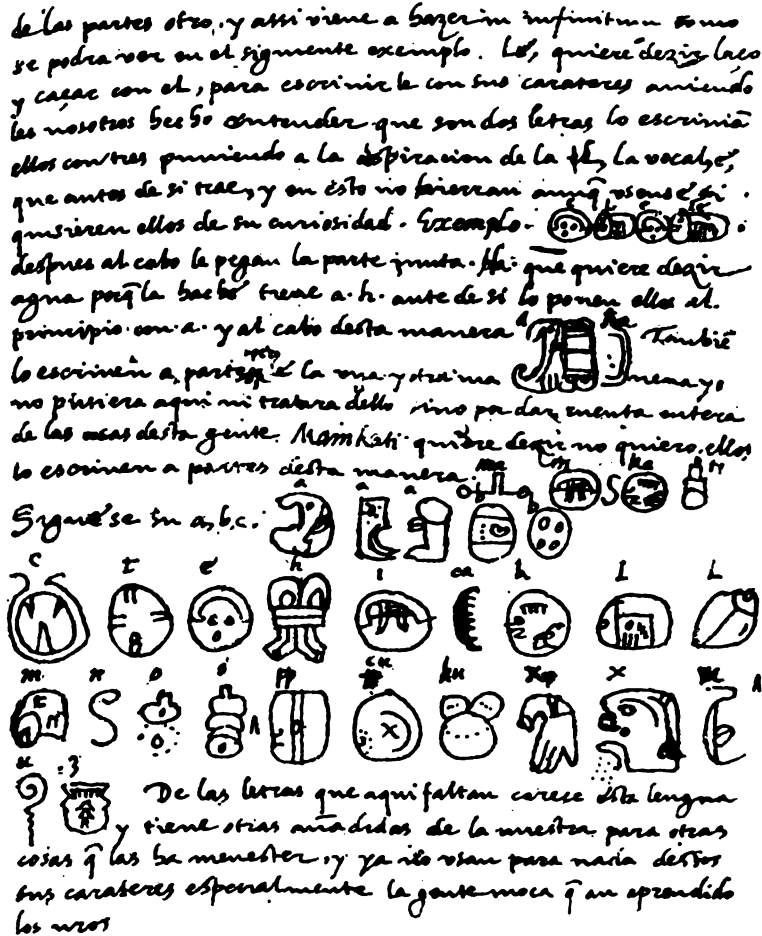 de las partes otro, y assi viene a hazer in infinitum como
se podra ver en el siguiente exemplo. Lé, quiere dezir laço
y caçar con el, para escrivirle con sus carateres aviendo
les nosotros hecho entender que son dos letras lo escrivian
ellos con tres puniendo a la aspiracion de la l, la vocal, é,
que antes de si trae, y en esto no hierran aunq̃ usense si
quisieren ellos de su curiosidad. Exemplo.
despues al cabo le pegan la parte junta. Ha. que quiere dezir
agua porq̃ la haché tiene a. h. ante de si lo ponen ellos al
principio con a. y al cabo desta manera
a ha
Tambiē
lo escriven a partes
é la una y otra ma nera yo
no pusiera aqui ni tratara dello sino por dar cuenta entera
de las cosas desta gente. Mainkati quiere dezir no quiero, ellos
lo escriven a partes desta manera.
ma i n ka ti
Siguese su a, b, c.
a a a b
c t é h i ca k l l
m n o ó pp cu ku x x
u z
De las letras que aqui faltan carece esta lengua
y tiene otras añadidas de la nuestra para otras
cosas q̃ las ha menester, y ya no usan para nada destos
sus carateres especialmente la gente moça q̃ an aprendido
los nros